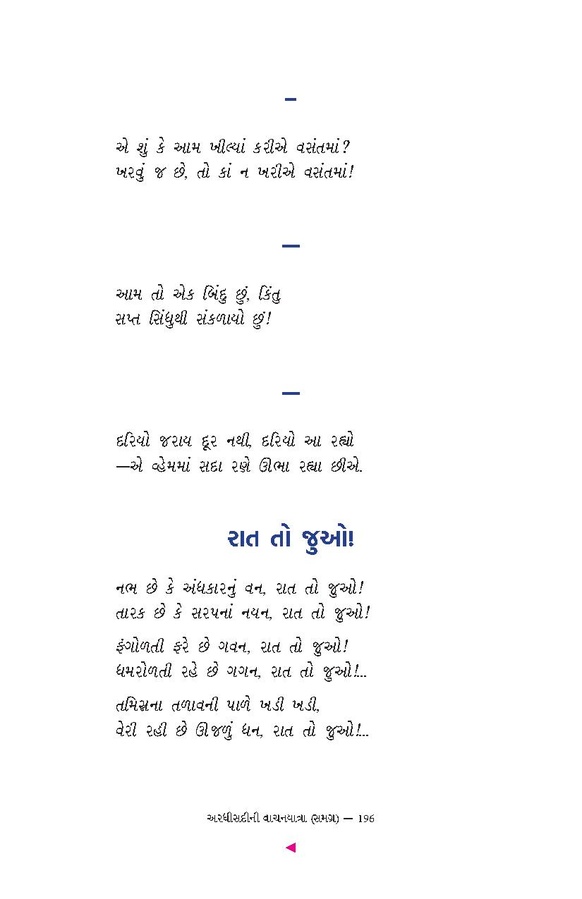 –
એ શું કે આમ ખીલ્યાં કરીએ વસંતમાં?
ખરવું જ છે, તો કાં ન ખરીએ વસંતમાં!
—
આમ તો એક બિંદુ છું, કિંતુ
સપ્ત સિંધુથી સંકળાયો છું!
—
દરિયો જરાય દૂર નથી, દરિયો આ રહ્યો
—એ વ્હેમમાં સદા રણે ઊભા રહ્યા છીએ.
રાત તો જુઓ!
નભ છે કે અંધકારનું વન, રાત તો જુઓ!
તારક છે કે સરપનાં નયન, રાત તો જુઓ!
ફંગોળતી ફરે છે ગવન, રાત તો જુઓ!
ધમરોળતી રહે છે ગગન, રાત તો જુઓ!...
તમિસ્રના તળાવની પાળે ખડી ખડી,
વેરી રહી છે ઊજળું ધન, રાત તો જુઓ!...
અરધીસદીની વાચનયાત્રા (સમગ્ર) — 196